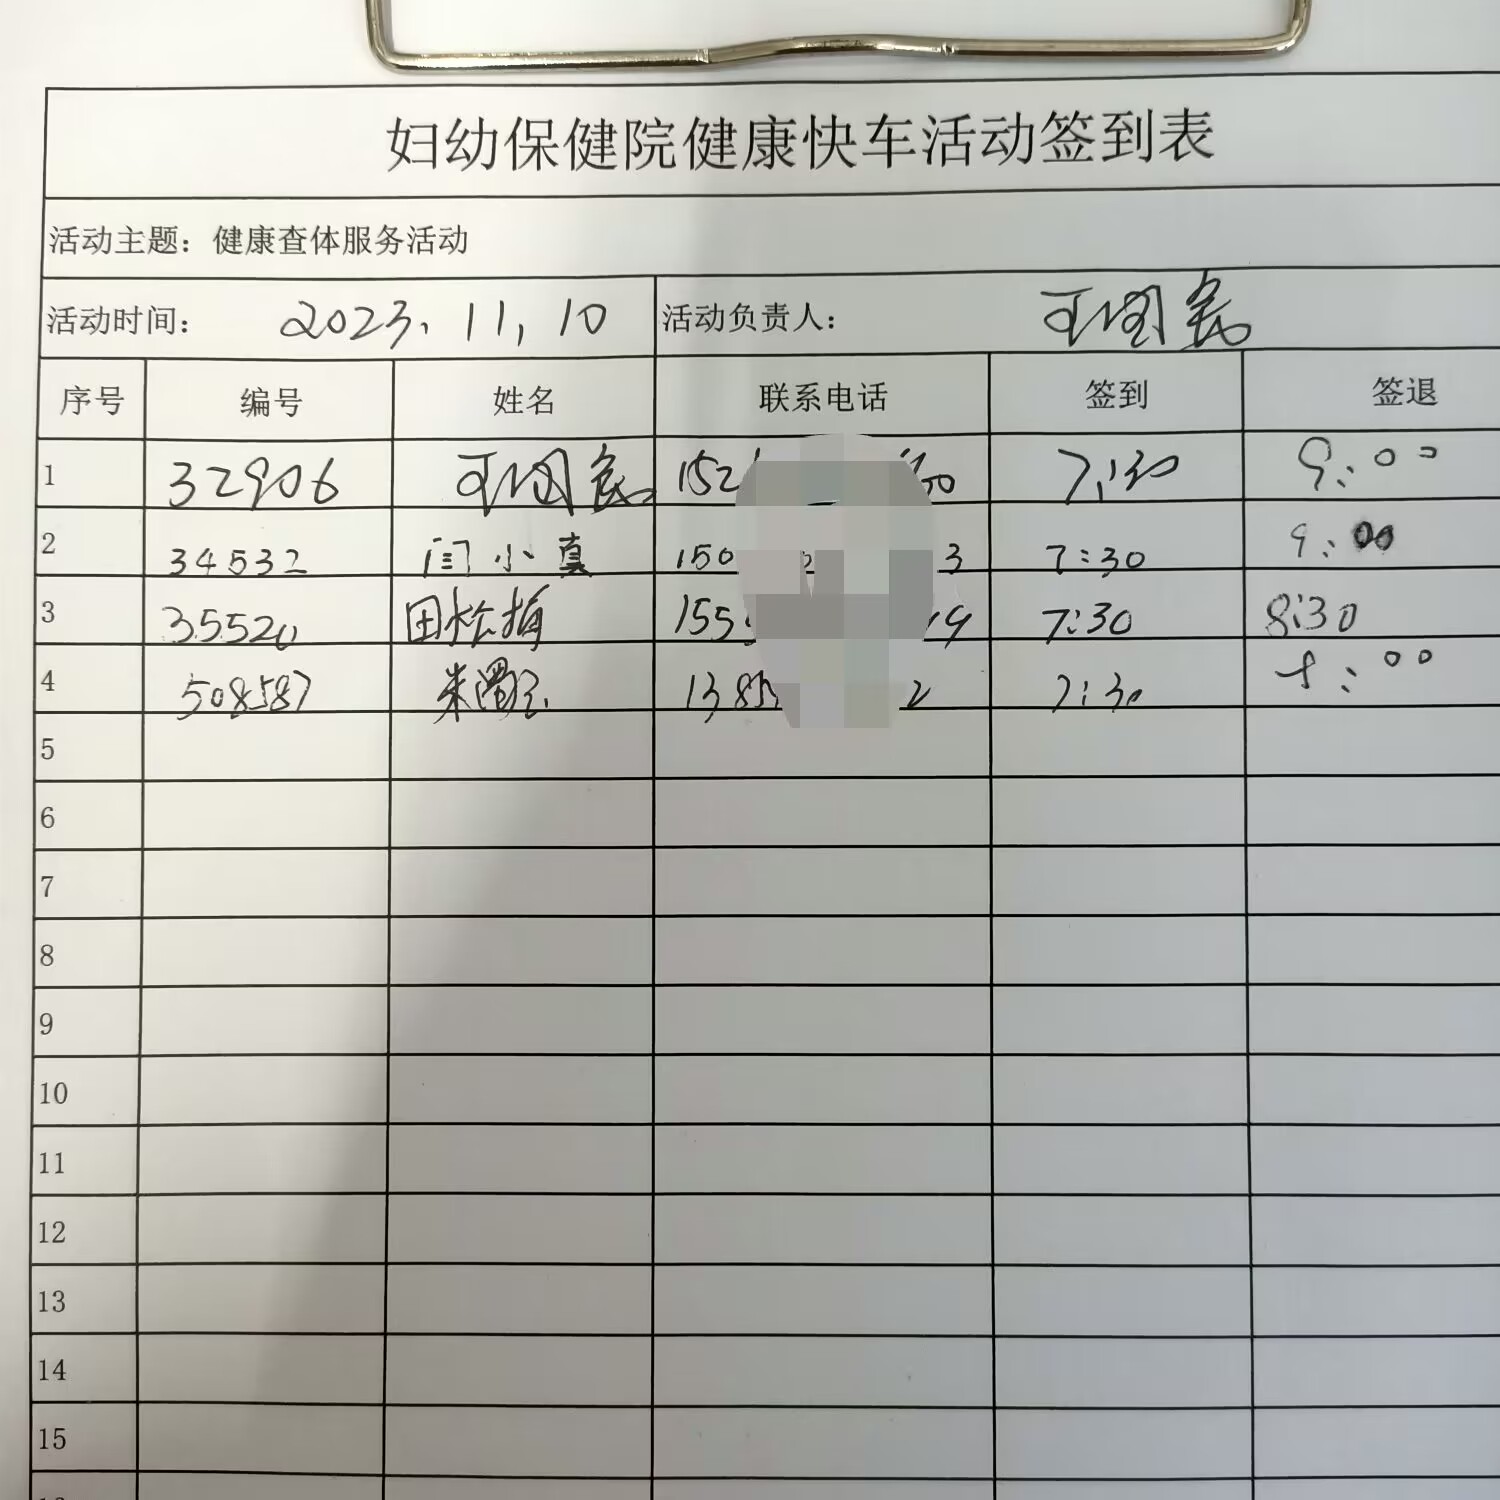 妇幼保健院健康快车活动签到表
活动主题：健康查体服务活动
活动时间： 2023.11,10 活动负责人：
序号 编号 姓名 联系电话 签到 签退
1 32906 152 7:30 9:00
2 34532 闫小真 150 3 7:30 9:00
3 35520 田松梅 155 9 7:30 8:30
4 508587 1385 2 7:30 8:00
5
6
7
8
9
10
11
12
13
14
15